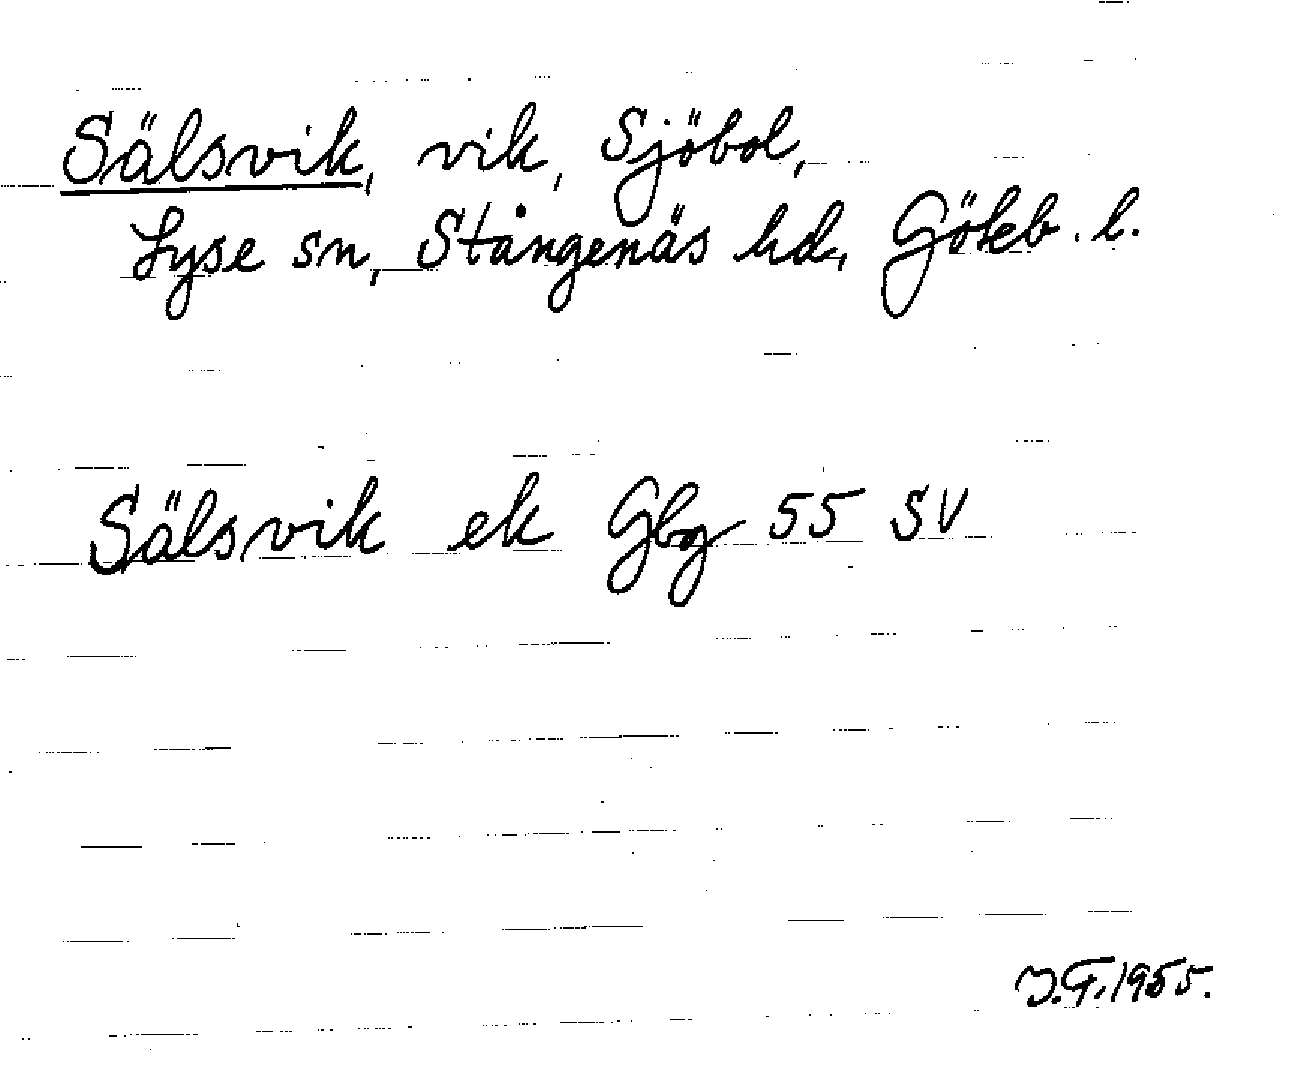 Sälsvik, vik, Sjöbol,
Lyse sn, Stångenäs hd, Gökb. l.
Sälsvik ek Gbg 55 SV
J.F. 1955.